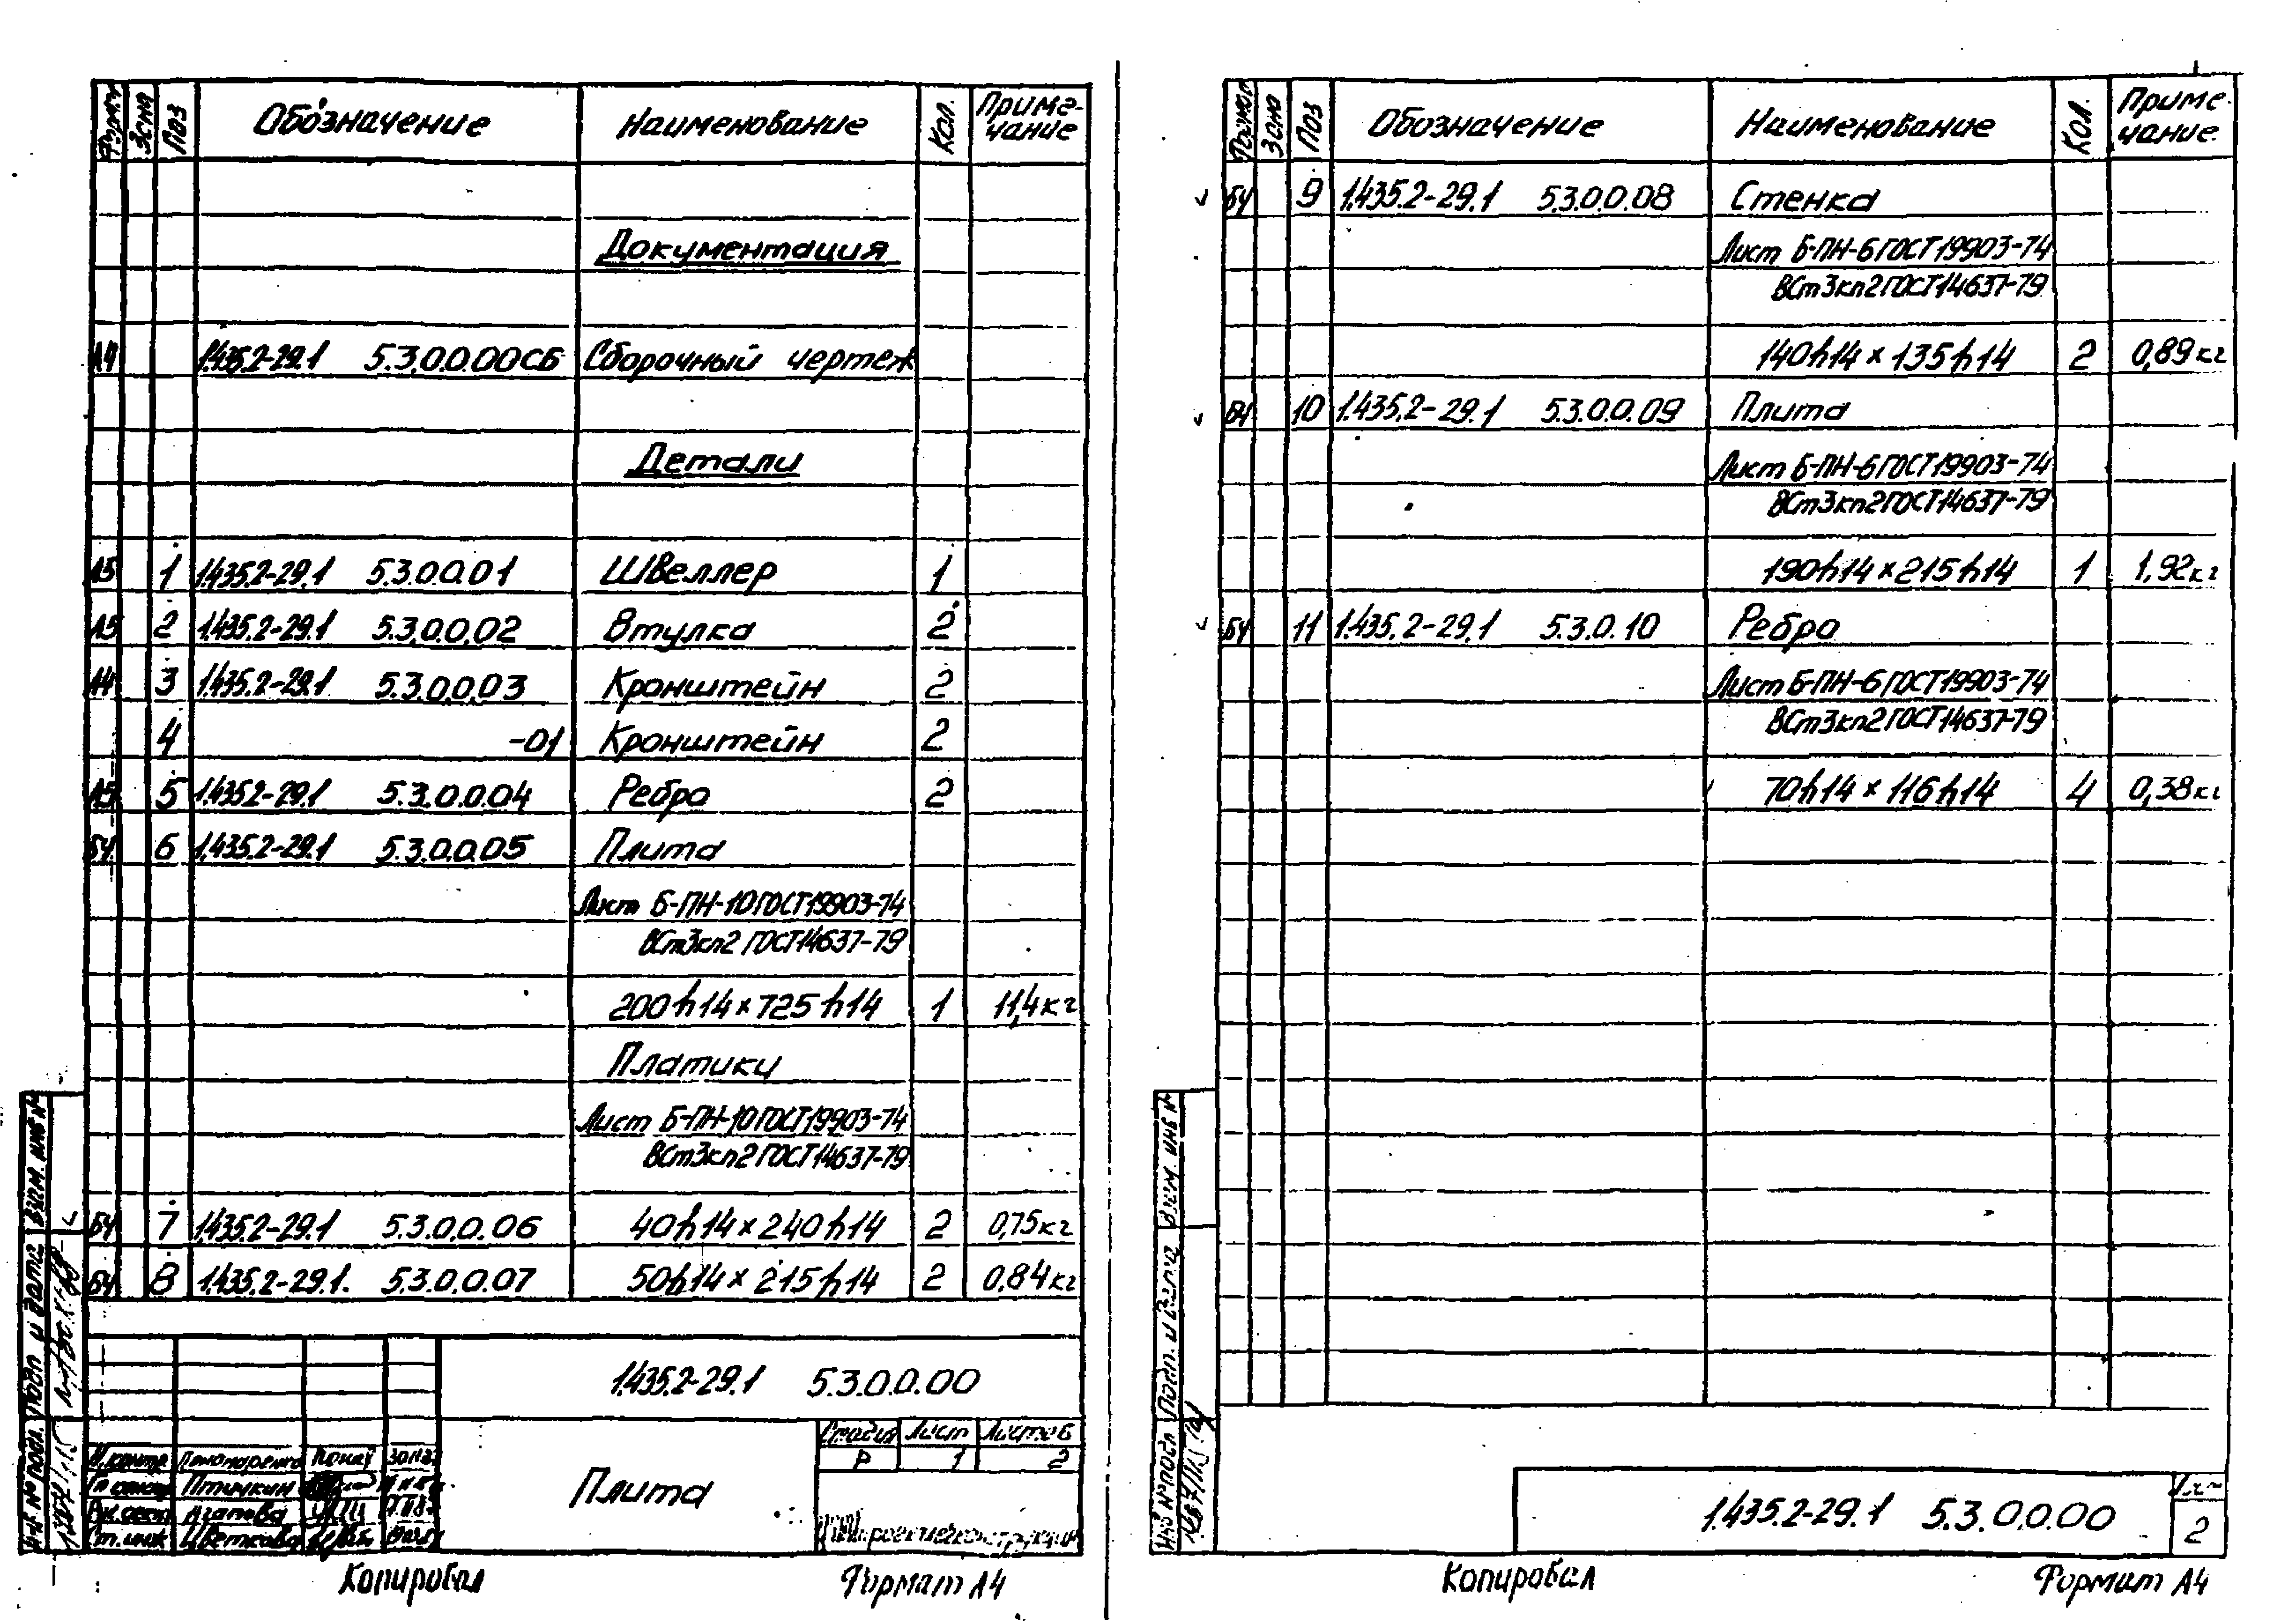 Формат Зона Поз Обозначение Наименование Кол. Приме-чание
Документация
А4 1.435.2-29.1 5.3.0.0.00СБ Сборочный чертеж
Детали
А5 1 1.435.2-29.1 5.3.0.0.01 Швеллер 1
А5 2 1.435.2-29.1 5.3.0.0.02 Втулка 2
А4 3 1.435.2-29.1 5.3.0.0.03 Кронштейн 2
4 -01 Кронштейн 2
А5 5 1.435.2-29.1 5.3.0.0.04 Ребро 2
БЧ 6 1.435.2-29.1 5.3.0.0.05 Плита
Лист Б-ПН-10 ГОСТ 19903-74
ВСт3кп2 ГОСТ 14637-79
200h14 × 725h14 1 11,4кг
Платики
Лист Б-ПН-10 ГОСТ 19903-74
ВСт3кп2 ГОСТ 14637-79
БЧ 7 1.435.2-29.1 5.3.0.0.06 40h14 × 240h14 2 0,75кг
БЧ 8 1.435.2-29.1. 5.3.0.0.07 50h14 × 215h14 2 0,84кг
1.435.2-29.1 5.3.0.0.00
Стадия Лист Листов
Р 1 2
Плита
Н.контр Пономаренко
Птичкин
Агапова
Ст.инж Цветкова
Инв № подл. Подп и дата Взам. инв №
Копировал Формат А4
Формат Зона Поз Обозначение Наименование Кол. Приме-чание.
БЧ 9 1.435.2-29.1 5.3.0.0.08 Стенка
Лист Б-ПН-6 ГОСТ 19903-74
ВСт3кп2 ГОСТ 14637-79
140h14 × 135h14 2 0,89кг
БЧ 10 1.435.2-29.1 5.3.0.0.09 Плита
Лист Б-ПН-6 ГОСТ 19903-74
ВСт3кп2 ГОСТ 14637-79
190h14 × 215h14 1 1,92кг
БЧ 11 1.435.2-29.1 5.3.0.10 Ребро
Лист Б-ПН-6 ГОСТ 19903-74
ВСт3кп2 ГОСТ 14637-79
70h14 × 116h14 4 0,38кг
Инв № подл Подп. и дата Взам. инв №
1.435.2-29.1 5.3.0.0.00
Лист
2
Копировал Формат А4